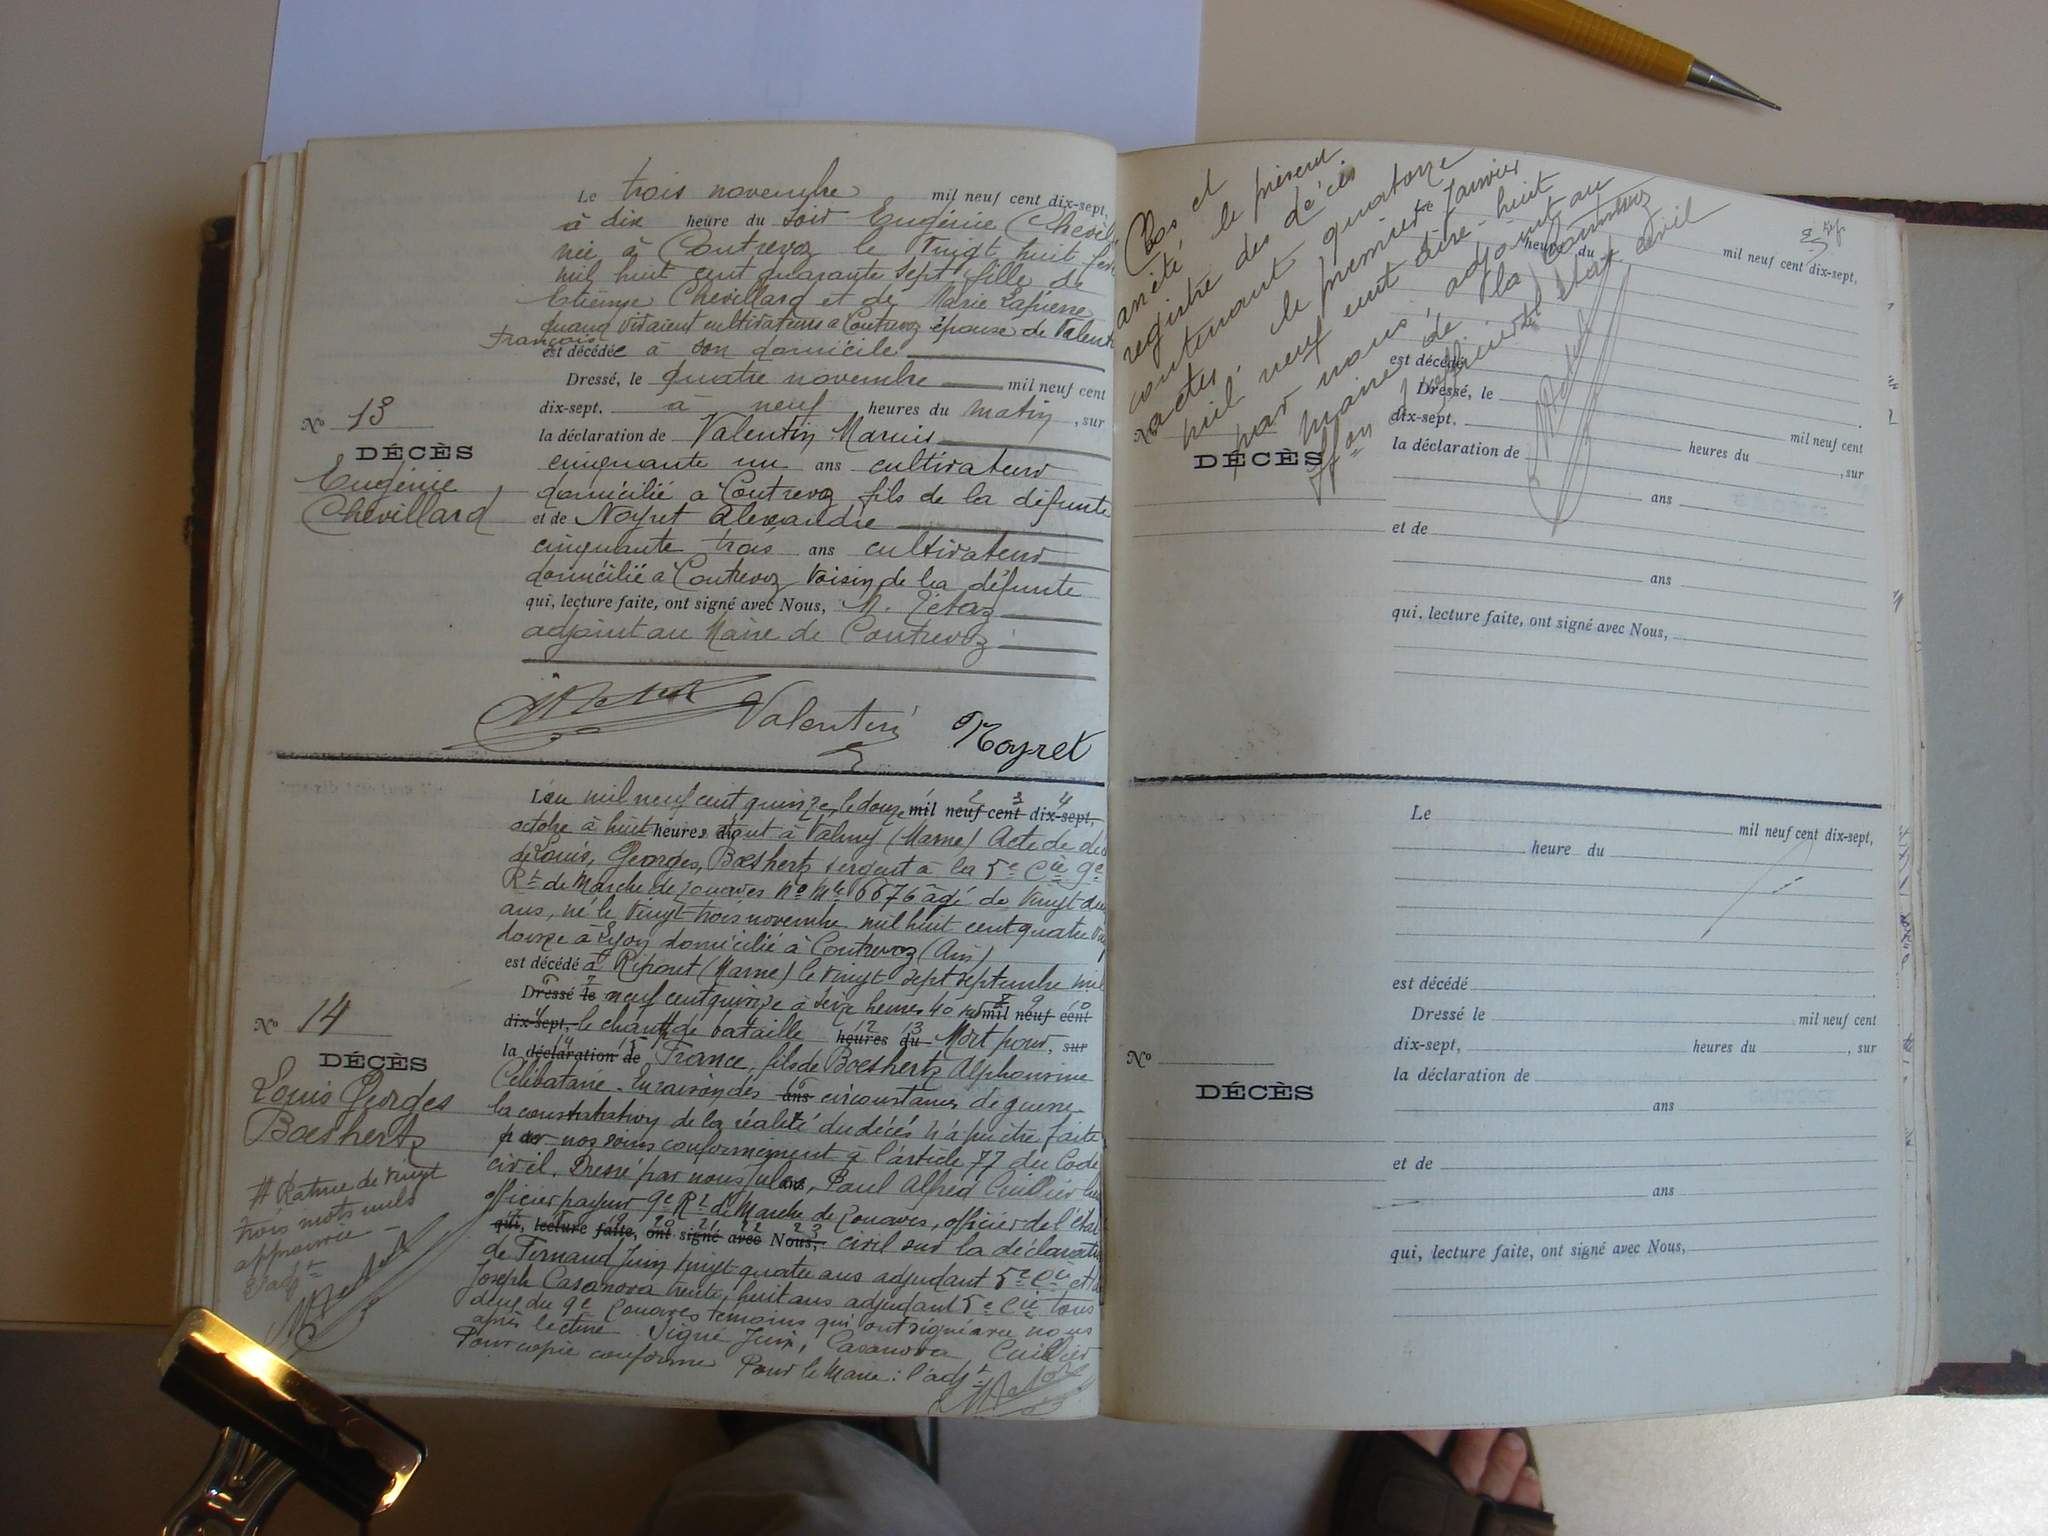 Le trois novembre mil neuf cent dix-sept,
à dix heure du soir Eugénie Chevill
née à Contrevoz le vingt huit fév
mil huit cent quarante sept fille de
Etienne Chevillard et de Marie Lapierre
quand vivaient cultivateurs à Contrevoz épouse de Valent
François
est décédée à son domicile
Dressé, le quatre novembre mil neuf cent
dix-sept. à neuf heures du matin, sur
la déclaration de Valentin Marius
cinquante un ans cultivateur
domicilié à Contrevoz fils de la défunte
et de Noyret Alexandre
cinquante trois ans cultivateur
domicilié à Contrevoz voisin de la défunte
qui, lecture faite, ont signé avec Nous, M. Tétaz
adjoint au Maire de Contrevoz
Nº 13
DÉCÈS
Eugénie
Chevillard
Valentin Noyret
L'an mil neuf cent quinze, le douze mil neuf cent dix-sept,
octobre à huit heures du à Valmy (Marne) Acte de dé
de Louis, Georges, Boeshertz sergent à la 5e Cie 9e
Rt de Marche de zouaves No Mle 6676 âgé de vingt deu
ans, né le vingt-trois novembre mil huit cent quatre vi
douze à Lyon domicilié à Contrevoz (Ain)
est décédé à Ripont (Marne) le vingt sept septembre mil
Dressé le neuf cent quinze à seize heures 40 mil neuf cent
dix-sept, le champ de bataille heures du Mort pour, sur
la déclaration de France, fils de Boeshertz Alphonsine
Célibataire. En raison des ans circonstances de guerre
la constatation de la réalité du décès n'a pu être faite
par nos soins conformément à l'article 77 du Code
civil. Dressé par nous Jules, Paul Alfred Cuillier
officier payeur 9e Rt de Marche de Zouaves, officier de l'état
qui, lecture faite, ont signé avec Nous, civil sur la déclarati
de Fernand Juin vingt quatre ans adjudant 5e Cie et de
Joseph Casanova trente huit ans adjudant 5e Cie tous
deux du 9e Zouaves témoins qui ont signé avec nous
après lecture. Signé Juin, Casanova Cuillier
Pour copie conforme Pour le Maire : l'adjt
Nº 14
DÉCÈS
Louis Georges
Boeshertz
# Rature de vingt
trois mots nuls
approuvée
L'adjt
Clos et
arrêté le présent
registre des décès
contenant quatorze
actes le premier Janvier
mil neuf cent dix-huit
par nous adjoint au
maire de la Commune
ffon d'officier de l'état civil
Le mil neuf cent dix-sept,
heure du
est décédé
Dressé, le mil neuf cent
dix-sept. heures du , sur
la déclaration de
ans
et de
ans
qui, lecture faite, ont signé avec Nous,
DÉCÈS
Le mil neuf cent dix-sept,
heure du
est décédé
Dressé le mil neuf cent
dix-sept, heures du , sur
la déclaration de
ans
et de
ans
qui, lecture faite, ont signé avec Nous,
Nº
DÉCÈS